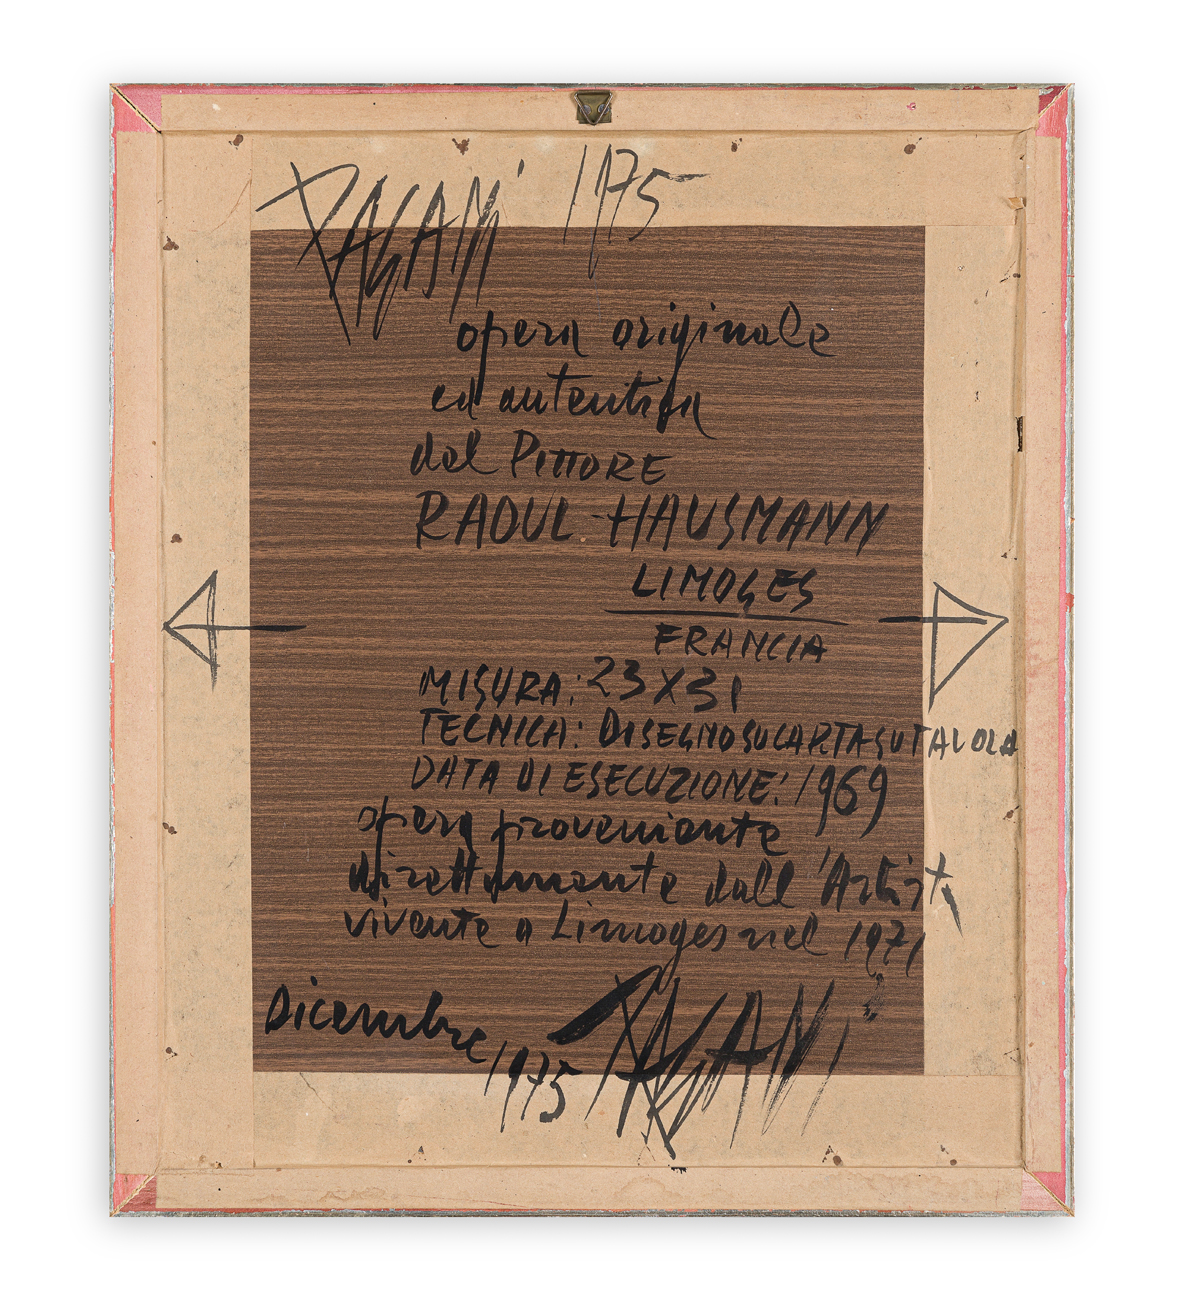 PAGANI 1975
opera originale
ed autentica
del PITTORE
RAOUL HAUSMANN
LIMOGES
FRANCIA
MISURA: 23X31
TECNICA: DISEGNO SU CARTA SU TAVOLA
DATA DI ESECUZIONE: 1969
opera proveniente
direttamente dall'Artista
vivente a Limoges nel 1971
Dicembre
1975 PAGANI